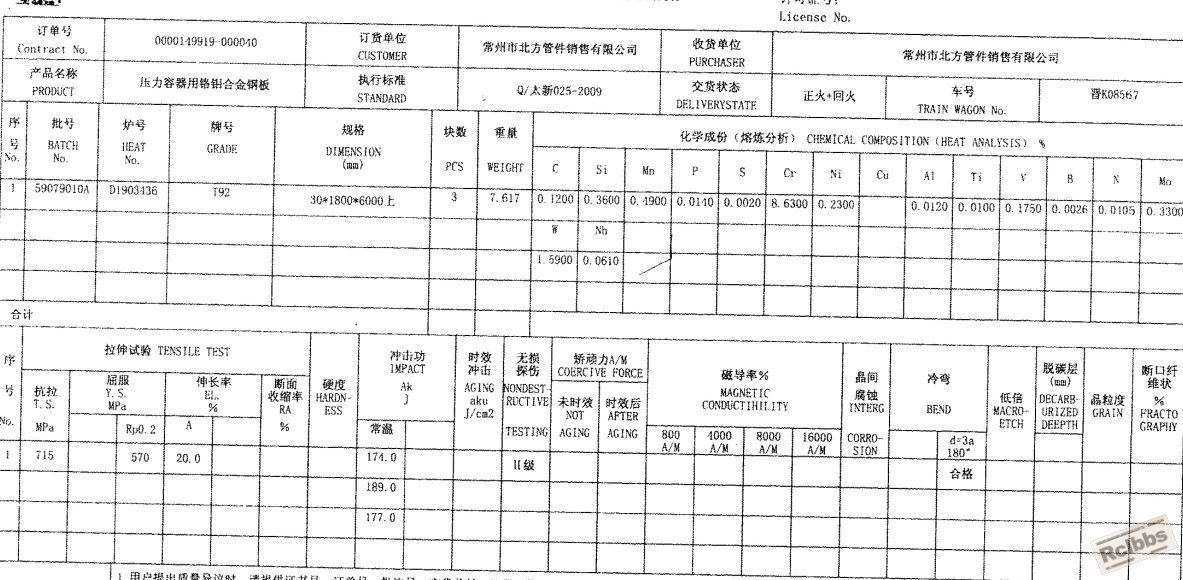 License No.
订单号 Contract No. 0000149919-000040 订货单位 CUSTOMER 常州市北方管件销售有限公司 收货单位 PURCHASER 常州市北方管件销售有限公司
产品名称 PRODUCT 压力容器用铬钼合金钢板 执行标准 STANDARD Q/太新025-2009 交货状态 DELIVERYSTATE 正火+回火 车号 TRAIN WAGON No. 晋K08567
序号 No. 批号 BATCH No. 炉号 HEAT No. 牌号 GRADE 规格 DIMENSION (mm) 块数 PCS 重量 WEIGHT 化学成份(熔炼分析) CHEMICAL COMPOSITION(HEAT ANALYSIS) %
C Si Mn P S Cr Ni Cu Al Ti V B N Mo
1 59079010A D1903436 T92 30*1800*6000上 3 7.617 0.1200 0.3600 0.4900 0.0140 0.0020 8.6300 0.2300 0.0120 0.0100 0.1750 0.0026 0.0105 0.3300
W Nb
1.5900 0.0610
合计
序号 No. 拉伸试验 TENSILE TEST 硬度 HARDNESS 冲击功 IMPACT Ak J 时效冲击 AGING aku J/cm2 无损探伤 NONDESTRUCTIVE TESTING 矫顽力A/M COERCIVE FORCE 磁导率% MAGNETIC CONDUCTIHILITY 晶间腐蚀 INTERG CORROSION 冷弯 BEND 低倍 MACROETCH 脱碳层 (mm) DECARBURIZED DEEPTH 晶粒度 GRAIN 断口纤维状 % FRACTOGRAPHY
抗拉 T.S. MPa 屈服 Y.S. MPa 伸长率 EL. % 断面收缩率 RA % 未时效 NOT AGING 时效后 AFTER AGING
Rp0.2 A 常温 800 A/M 4000 A/M 8000 A/M 16000 A/M d=3a 180°
1 715 570 20.0 174.0 II级 合格
189.0
177.0
Rclbbs